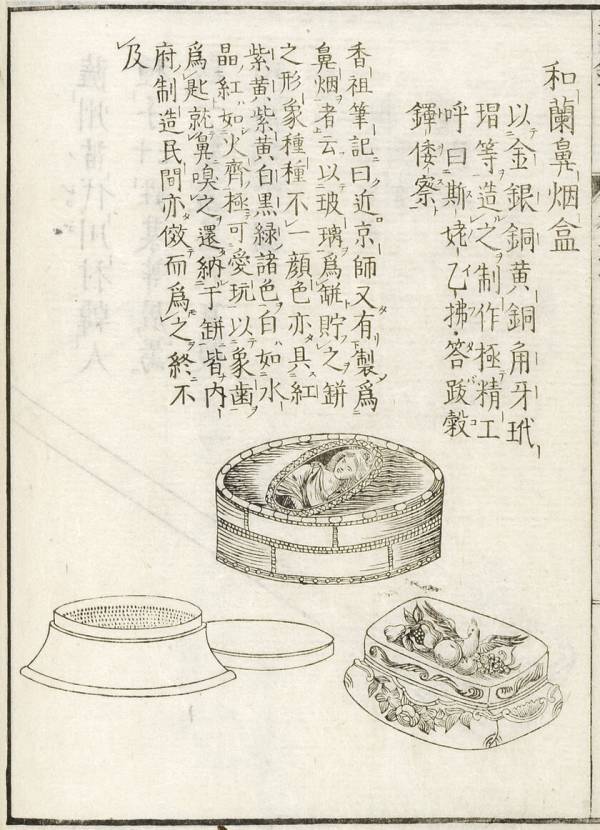 和蘭鼻烟盒
以金銀銅黄銅角牙玳
瑁等造之制作極精工
呼曰斯姥乙拂答跋穀
鐸倭察
香祖筆記曰近京師又有製爲
鼻烟者云以玻璃爲缾貯之缾
之形象種種不一顔色亦具紅
紫黄白黒緑諸色白如水
晶紅如火齊極可愛玩以象齒
爲匙就鼻嗅之還納于缾皆内
府制造民間亦倣而爲之終不
及